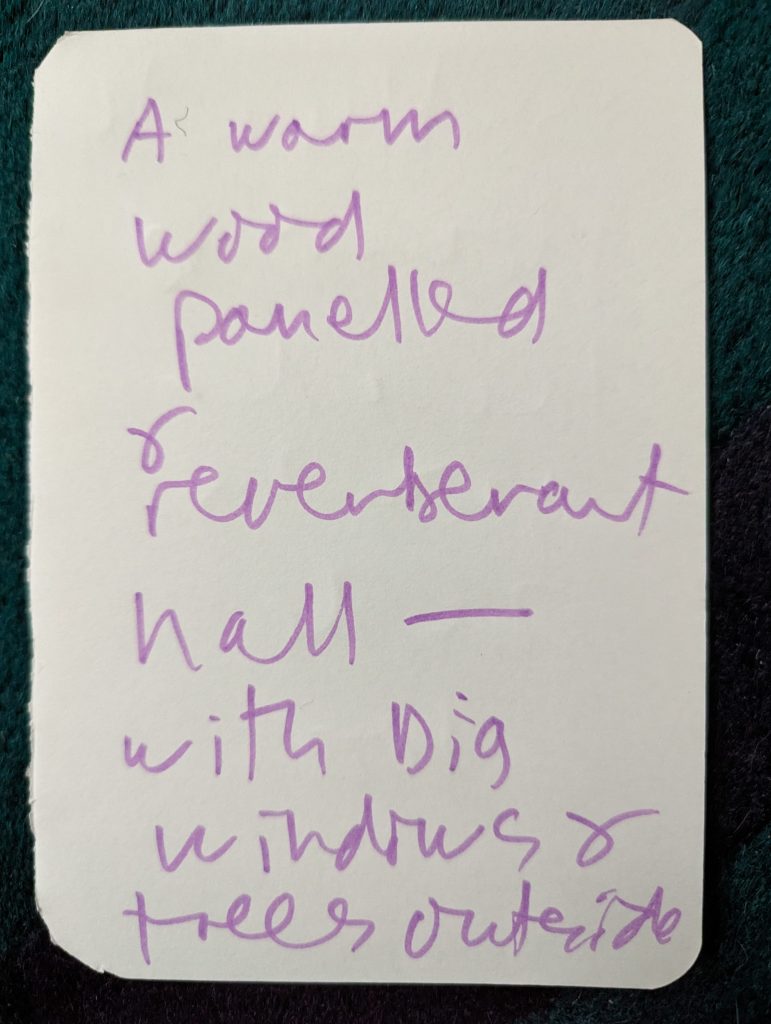 A warm
wood
panelled
&
reverberant
hall —
with big
windows &
trees outside